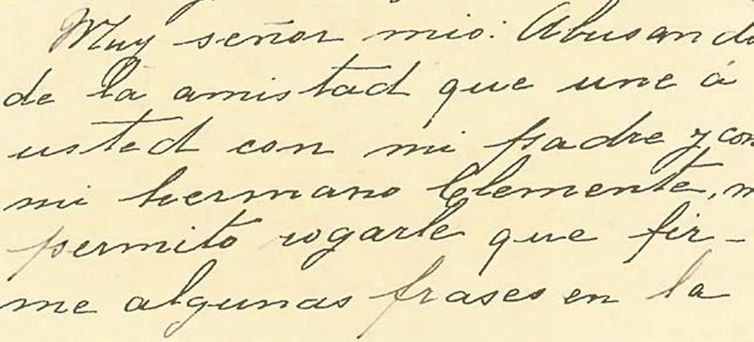 Muy señor mio: Abusando
de la amistad que une á
usted con mi padre y con
mi hermano Clemente, m
permito rogarle que fir-
me algunas frases en la